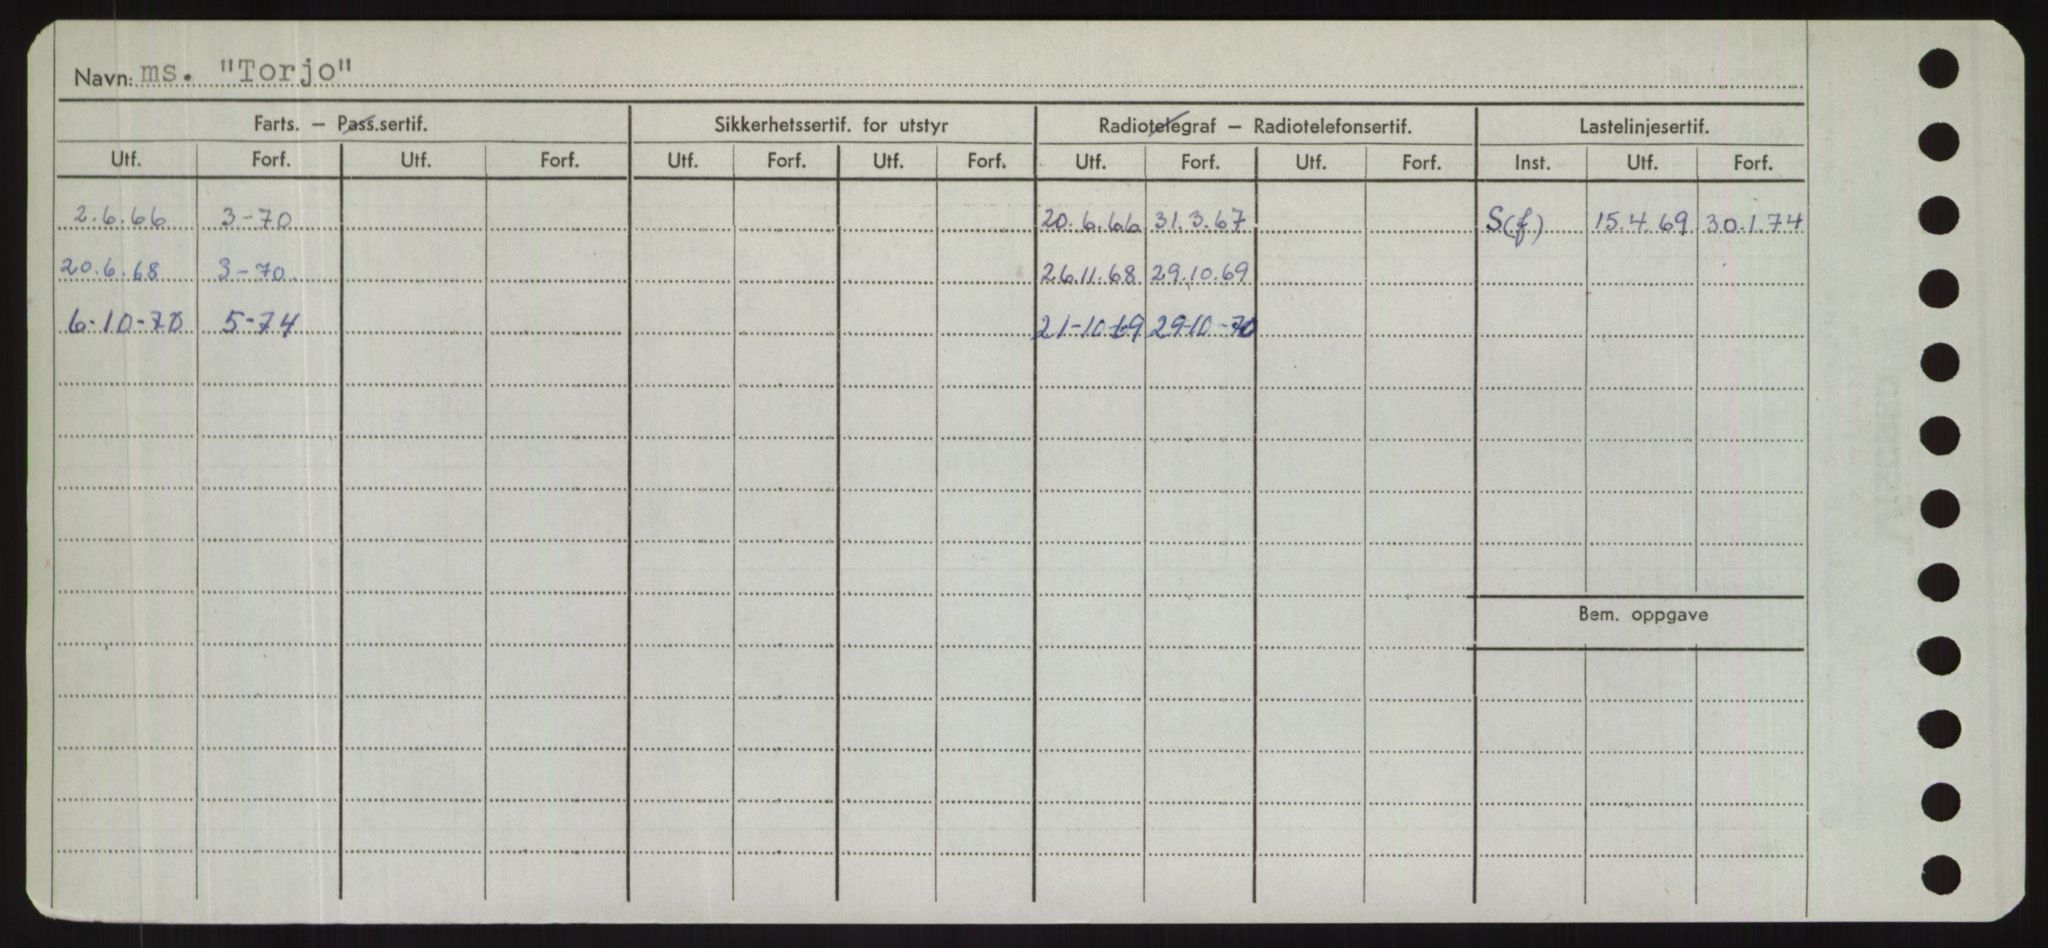 Navn: ms. "Torjo"
Farts. — Pass.sertif. Sikkerhetssertif. for utstyr Radiotelegraf — Radiotelefonsertif. Lastelinjesertif.
Utf. Forf. Utf. Forf. Utf. Forf. Utf. Forf. Utf. Forf. Utf. Forf. Inst. Utf. Forf.
2.6.66 3-70 20.6.66 31.3.67 S(f.) 15.4.69 30.1.74
20.6.68 3-70 26.11.68 29.10.69
6-10-70 5-74 21-10-69 29-10-70
Bem. oppgave